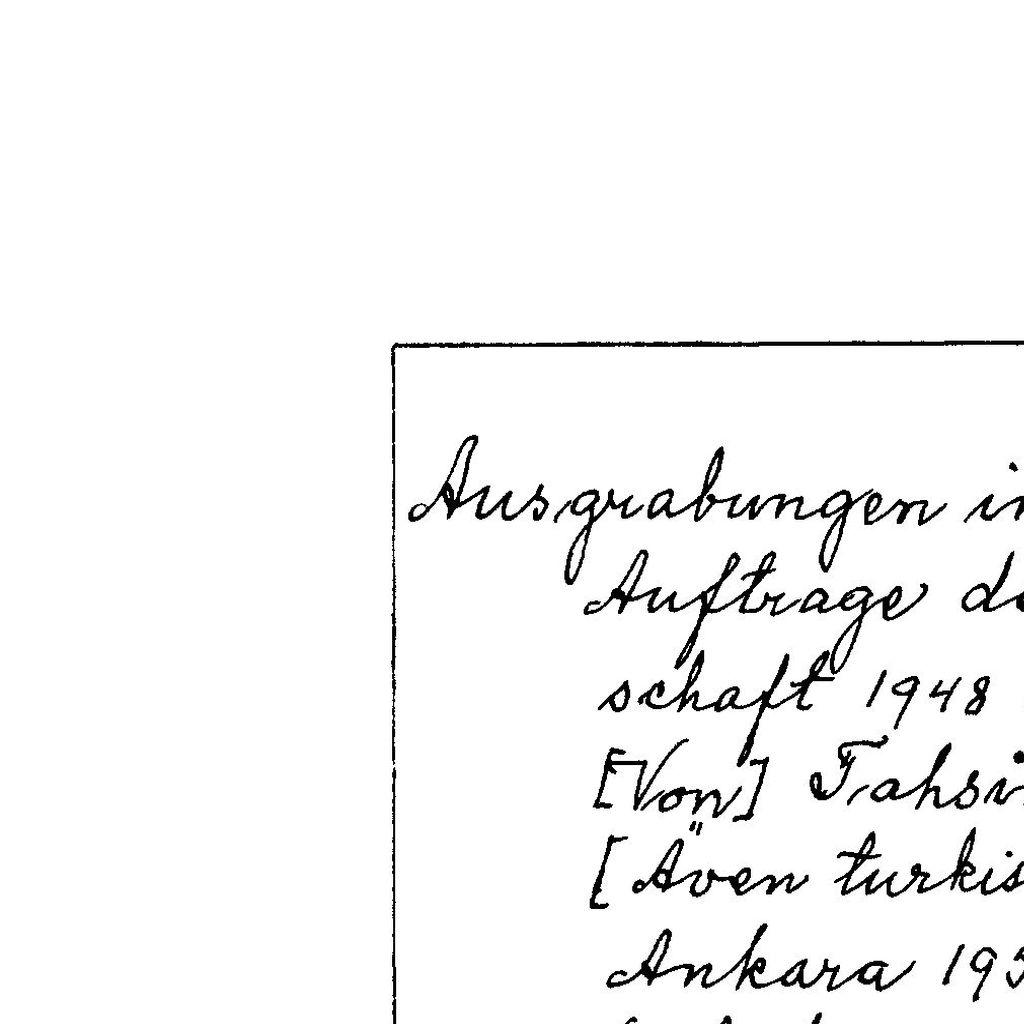 Ausgrabungen in
Auftrage de
schaft 1948
[Von] Tahsi
[Även turkis
Ankara 195